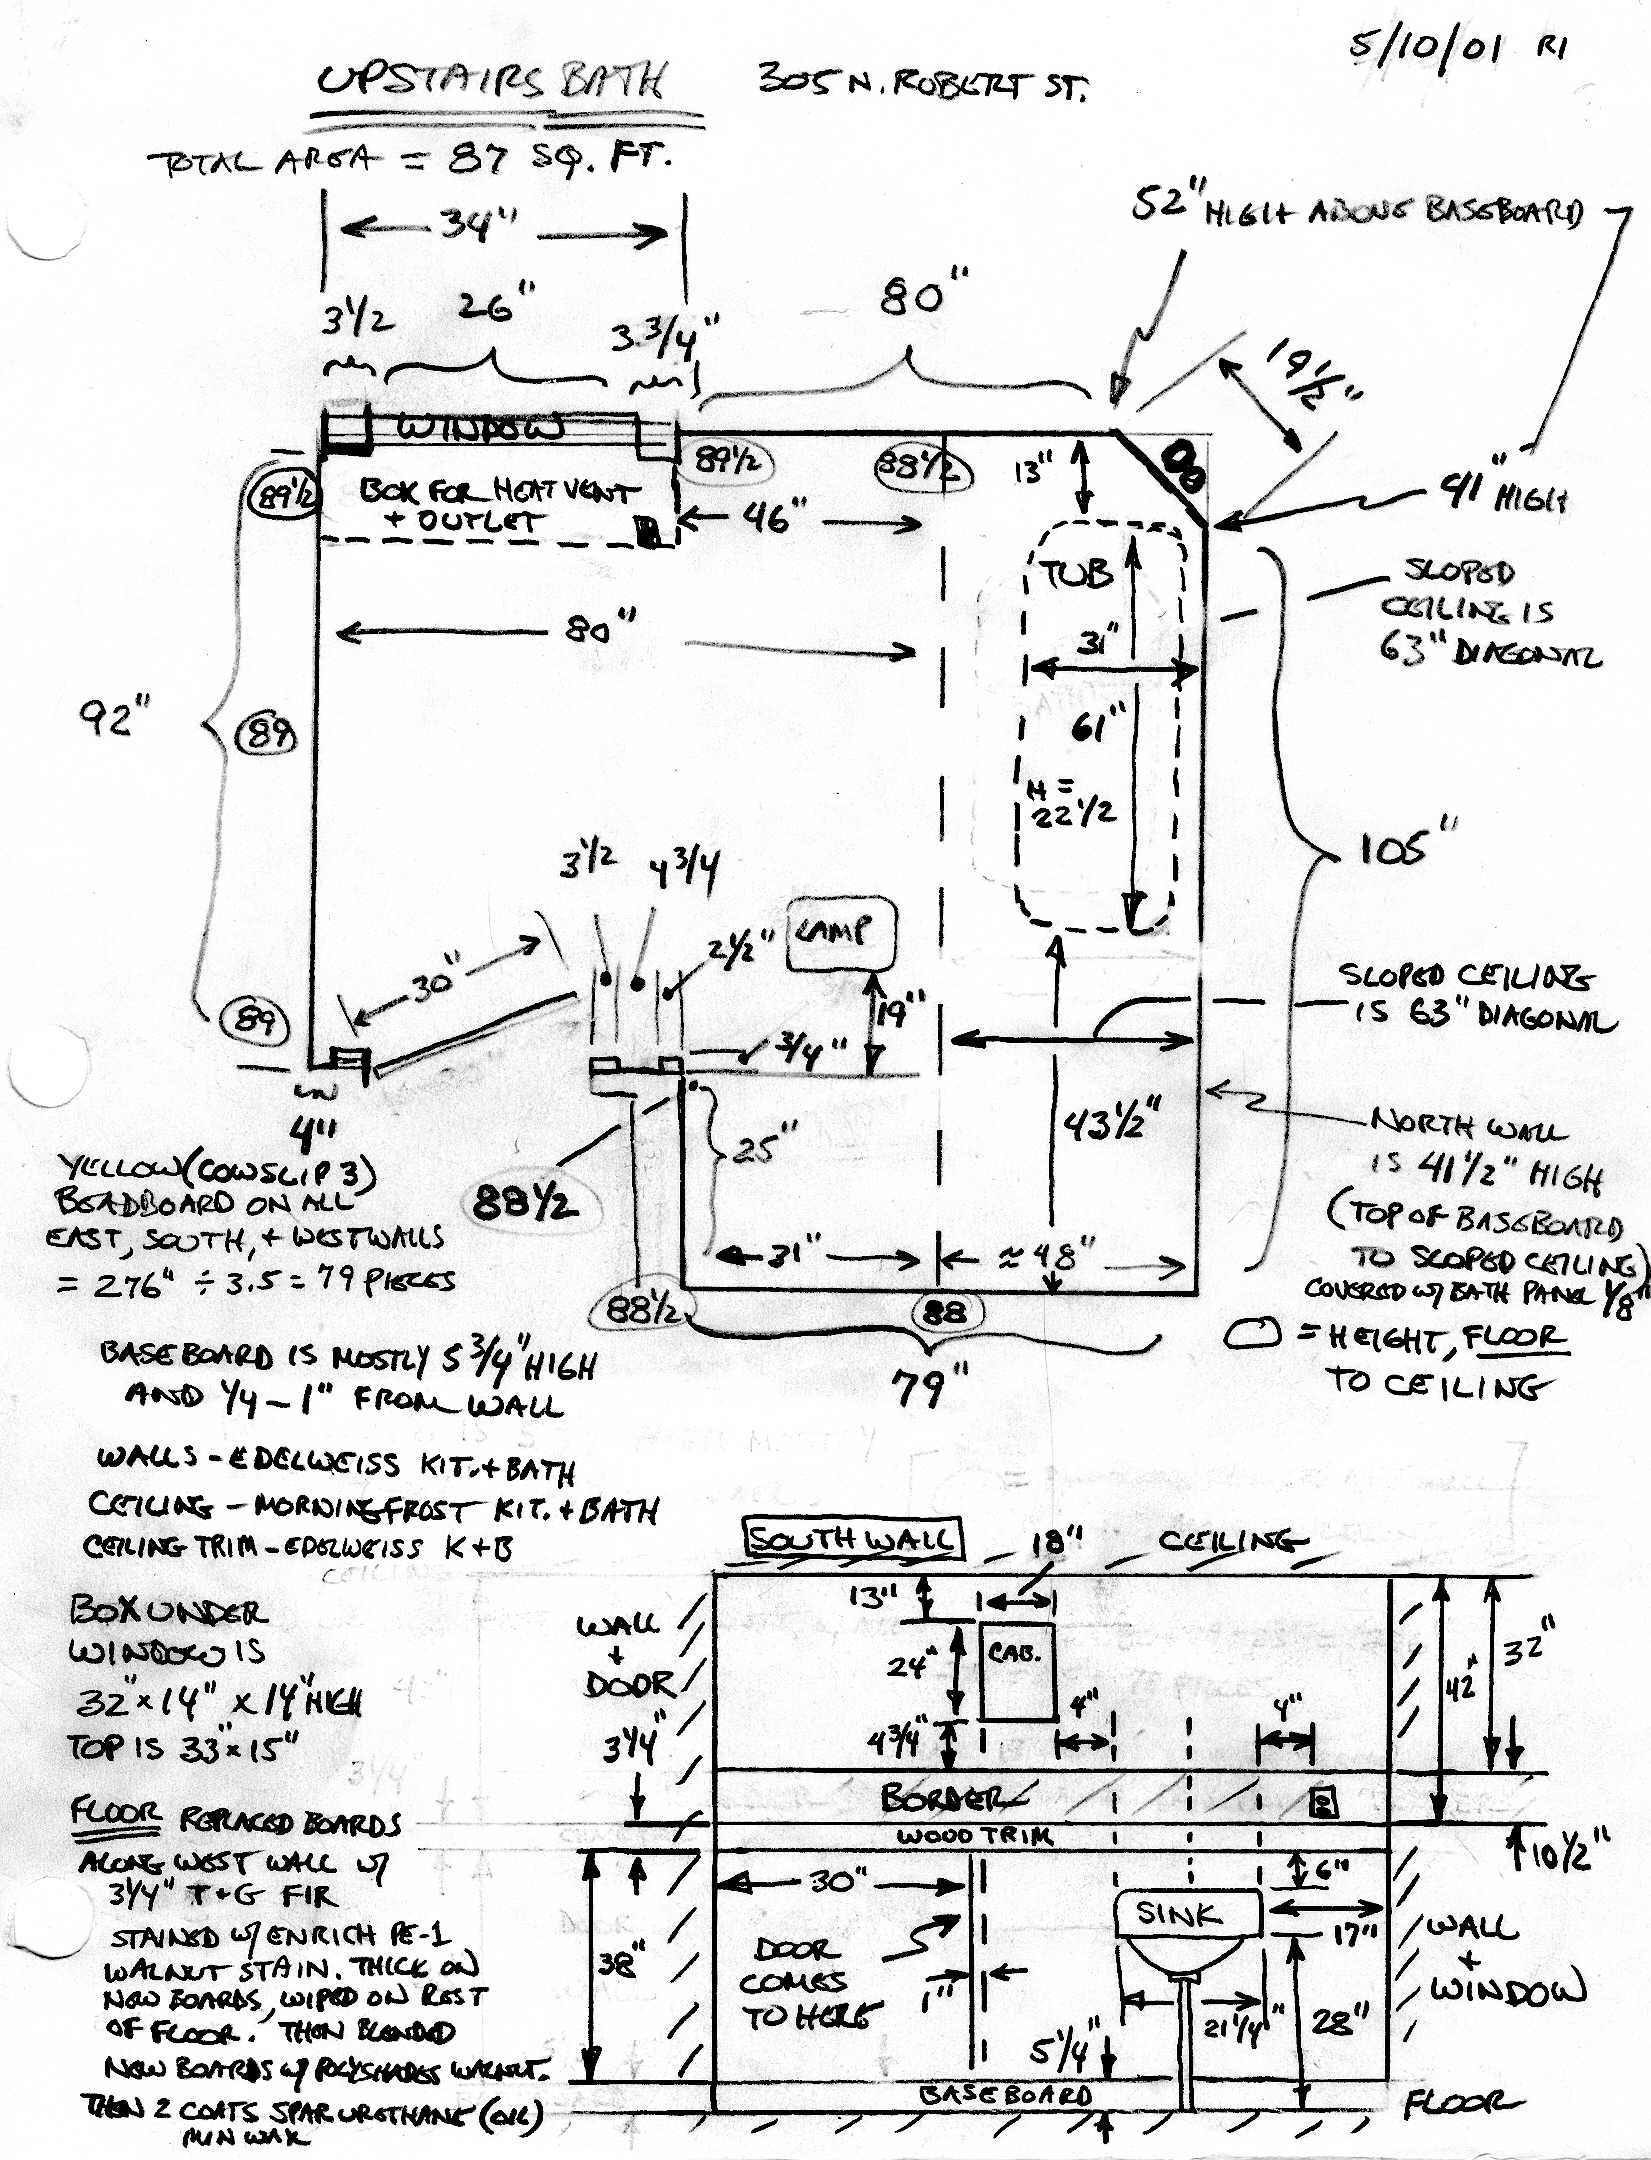 5/10/01 R1
UPSTAIRS BATH 305 N. ROBERT ST.
TOTAL AREA = 87 SQ. FT.
34"
52" HIGH ABOVE BASEBOARD
3 1/2 26" 3 3/4"
80"
19 1/2"
WINDOW
89 1/2 88 1/2
13"
89 1/2
BOX FOR HEAT VENT
+ OUTLET
46"
41" HIGH
TUB
SLOPED
CEILING IS
63" DIAGONAL
80"
31"
92"
89
61"
H =
22 1/2
105"
3 1/2 4 3/4
2 1/2"
LAMP
30"
19"
SLOPED CEILING
IS 63" DIAGONAL
89
3/4"
4"
25"
43 1/2"
NORTH WALL
IS 41 1/2" HIGH
(TOP OF BASEBOARD
TO SLOPED CEILING)
COVERED W/ BATH PANEL 1/8"
88 1/2
31" ≈ 48"
88 1/2 88
79"
= HEIGHT, FLOOR
TO CEILING
YELLOW (COWSLIP 3)
BEADBOARD ON ALL
EAST, SOUTH, + WEST WALLS
= 276" ÷ 3.5 = 79 PIECES
BASEBOARD IS MOSTLY 5 3/4" HIGH
AND 1/4 - 1" FROM WALL
WALLS - EDELWEISS KIT. + BATH
CEILING - MORNING FROST KIT. + BATH
CEILING TRIM - EDELWEISS K + B
BOX UNDER
WINDOW IS
32" x 14" x 14" HIGH
TOP IS 33" x 15"
FLOOR REPLACED BOARDS
ALONG WEST WALL W/
3 1/4" T + G FIR
STAINED W/ ENRICH PE-1
WALNUT STAIN. THICK ON
NEW BOARDS, WIPED ON REST
OF FLOOR. THEN BLENDED
NEW BOARDS W/ POLYSHADES WALNUT.
THEN 2 COATS SPAR URETHANE (OIL)
MINWAX
SOUTH WALL 18" CEILING
13"
WALL
+
DOOR
24" CAB.
32"
42"
3 1/4"
4 3/4" 4" 4"
BORDER
WOOD TRIM
10 1/2"
30"
6"
SINK
17"
38"
DOOR
COMES
TO HERE
1"
WALL
+
WINDOW
21 1/4"
28"
5 1/4"
BASEBOARD
FLOOR